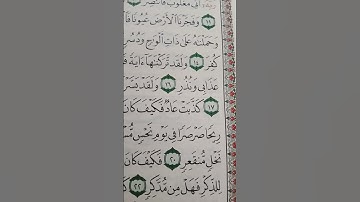 أَنِّي مَغْلُوبٌ فَٱنتَصِرْ
١١ وَفَجَّرْنَا ٱلْأَرْضَ عُيُونًا فَٱ
وَحَمَلْنَٰهُ عَلَىٰ ذَاتِ أَلْوَٰحٍ وَدُسُرٍ
كُفِرَ ١٤ وَلَقَد تَّرَكْنَٰهَآ ءَايَةً فَ
عَذَابِي وَنُذُرِ ١٦ وَلَقَدْ يَسَّرْ
١٧ كَذَّبَتْ عَادٌ فَكَيْفَ كَانَ
رِيحًا صَرْصَرًا فِي يَوْمِ نَحْسٍ مُّسْ
نَخْلٍ مُّنقَعِرٍ ٢٠ فَكَيْفَ كَانَ
لِلذِّكْرِ فَهَلْ مِن مُّدَّكِرٍ ٢٢ كَ